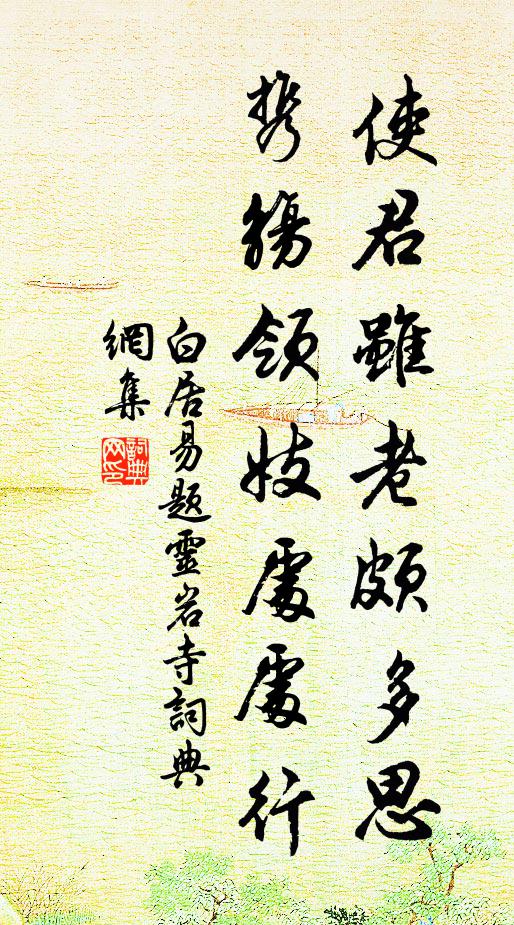 使君雖老頗多思
携觴領妓處處行
白居易題靈岩寺詞典
網集
詞典
网印